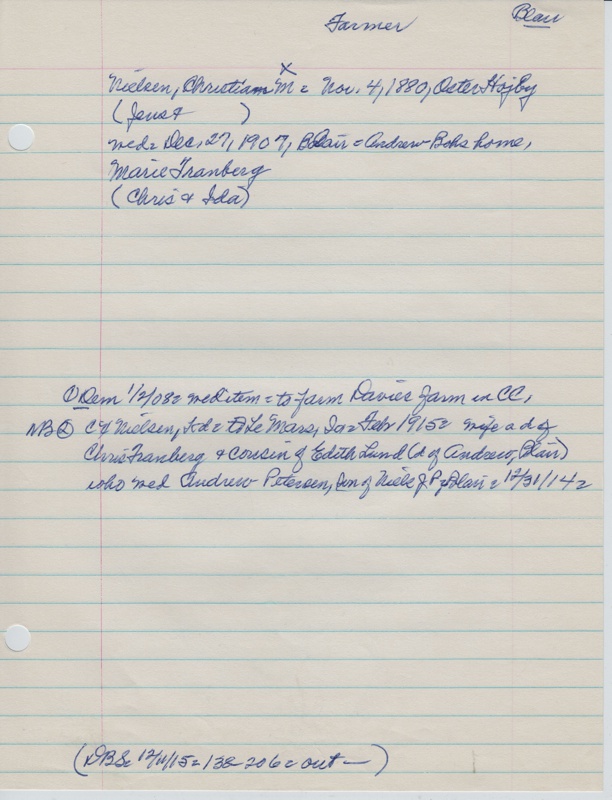 Farmer
Blair
x
Nielsen, Christian M = Nov. 4, 1880, Oster Hojby
(Jens &      )
wed = Dec. 27, 1907, Blair = Andrew Bohs home,
Marie Franberg
(Chris & Ida)
① Dem 1/2/08 = wed item = to farm Davies farm in CC,
NB ② C & Nielsen, = to Le Mars, Ia = Feb 1915 = wife a d of
Chris Franberg & cousin of Edith Lund (d of Andrew, Blair)
who wed Andrew Petersen, son of Niels J. P of Blair = 12/31/14 =
(DBS = 12/11/15 = 138-206 = out — )